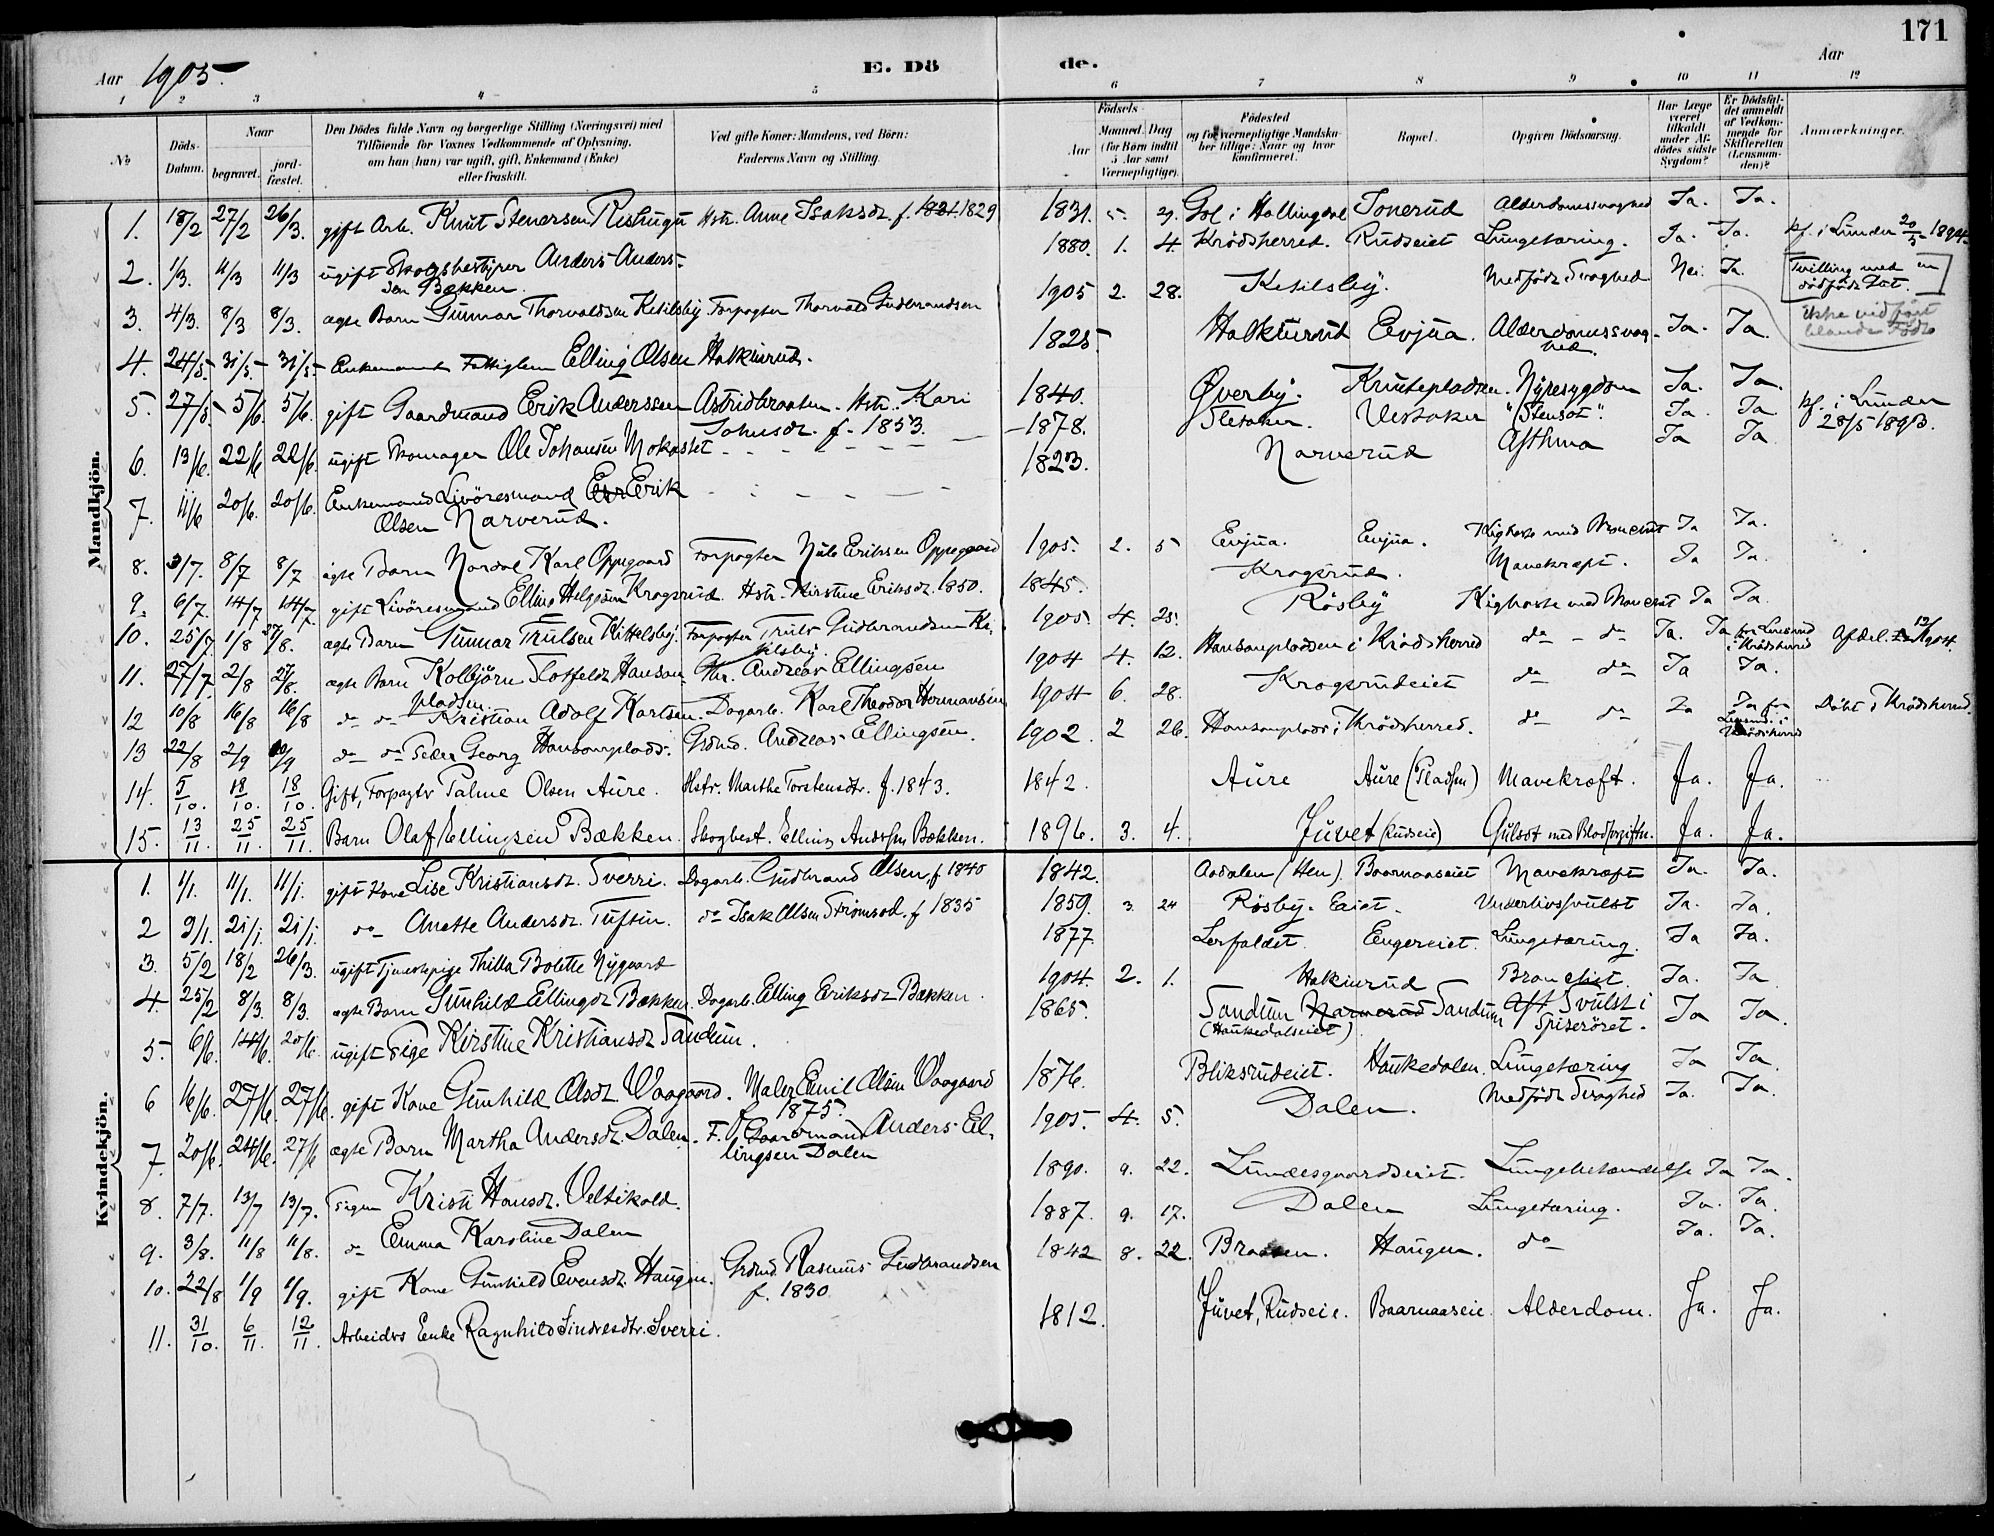 171
Aar 1905.
E. Dö
de.
Aar
1 2 3 4 5 6 7 8 9 10 11 12
No
Döds-Datum.
Naar
begravet.
jord-fæstet.
Den Dödes fulde Navn og borgerlige Stilling (Næringsvei) med
Tilföiende for Voxnes Vedkommende af Oplysning,
om han (hun) var ugift, gift, Enkemand (Enke)
eller fraskilt.
Ved gifte Koner: Mandens, ved Börn:
Faderens Navn og Stilling.
Födsels-
Aar
Maaned. Dag
(for Børn indtil
5 Aar samt
Værnepligtige).
Födested
og for værnepligtige Mandska-
ber tillige: Naar og hvor
konfirmeret.
Bopæl.
Opgiven Dödsaarsag.
Har Læge
været
tilkaldt
under Af-
dödes sidste
Sygdom?
Er Dödsfal-
det anmeldt
af Vedkom-
mende for
Skifteretten
(Lensman-
den)?
Anmærkninger.
Mandkjön.
1. 18/2 27/2 26/3. gift Arb. Knut Stenersen Ristugu Hstr. Anne Isaksdr. f. 1821. 1829 1831. 5. 29. Gol i Hallingdal Tonerud Alderdomssvaghed Ja. Ja.
2. 1/3. 11/3 11/3 ugift Skogsbestyrer Anders Anders-
sen Bækken. 1880. 1. 4. Krödsherred. Rudseiet Lungetæring. Ja. Ja. kf. i Lunder 20/5 1894.
3. 4/3. 8/3 8/3. ægte Barn Gunnar Thorvaldsen Ketilsby Forpagter Thorvald Gudbrandsen 1905 2. 28. Ketilsby. Medfödt Svaghed Nei. Ja. Tvilling med en
dödfödt Gut.
ikke vedfört
blandt Födte
4. 24/5. 31/5 31/5 Enkemand Fattiglem Elling Olsen Hakkinrud. 1825. Hakkinrud Evjua. Alderdomssvag-
hed. Ja. Ja.
5. 27/5 5/6. 5/6. gift Gaardmand Erik Anderssen Astridbraaten. Hstr. Kari
Johnsdr. f. 1853. 1840. Överby. Knutepladsen. Nyresygdom Ja. Ja.
6. 13/6. 22/6 22/6. ugift Skomager Ole Johansen Mokastet 1878. Sletaker. Vestaker "Stensot". Ja. Ja kf. i Lunder
28/5 1893.
7. 11/6 20/6. 20/6. Enkemand Livöresmand Erik
Olsen Narverud. 1823. Narverud Asthma Ja Ja.
8. 3/7. 8/7 8/7 ægte Barn Nordal Karl Oppegaard Forpagter Nils Eriksen Oppegaard 1905. 2. 5 Evjua. Evjua. Kighoste med Bronchit Ja Ja.
9. 6/7. 14/7 14/7. gift Livöresmand Elling Helgesen Krogsrud. Hstr. Kirstine Eriksdr. 1850. 1845. Krogsrud. Mavekræft. Ja Ja.
10. 25/7 1/8 27/8. ægte Barn Gunnar Trulsen Kittelsby. Forpagter Truls Gudbrandsen Ki-
tilsby. 1905. 4. 25. Rösby Kighoste med Bronchit Ja Ja.
11. 27/7. 2/8 27/8. ægte Barn Kolbjörn Slotfeldt Hanson-
pladsen. Andreas Ellingsen 1904 4. 12. Hansonpladsen i Krödsherred do - do Ja. Ja for Lensmd
i Krödsherred
12 10/8 16/8 16/8 do do Kristian Adolf Karlsen. Dagarb. Karl Theodor Hermansen 1904 6. 28. Krogsrudeiet do do Ja Ja.
13 22/8 2/9 10/9 do do Peder Georg Hansonplads. Grdmd. Andreas Ellingsen. 1902 2 26. Hansonplads i Krödsherred. do do Ja Ja for
Lensmd. i
Krödsherred Döbt i Krödsherred.
14. 5/10. 18/10. 18/10. Gift, Forpagtr Palme Olsen Aure. Hstr. Marthe Torstensdtr. f. 1843. 1842. Aure Aure (Pladsen) Mavekræft. Ja. Ja.
15. 13/11. 25/11. 25/11. Barn Olaf Ellingsen Bækken. Skogbest. Elling Andersen Bækken. 1896. 3. 4. Juvet (Rudseie) Gulsot med Blodforgiftn. Ja. Ja.
Kvindekjön.
1. 1/1. 11/1. 11/1. gift Kone Lise Kristiansdr. Sverri. Dagarb. Gudbrand Olsen f 1840 1842. Aadalen (Hen). Baarnaaseiet Mavekræft Ja. Ja.
2 9/1. 21/1. 21/1. do Anette Andersdr. Tuftin. do Isak Olsen Strömsod. f 1835 1859. 3. 24 Rösby-Eiet. Underlivssvulst Ja. Ja.
3. 5/2 18/2 26/3. ugift Tjenestepige Thilla Bolette Nygaard 1877. Lerfaldet. Eugereiet. Lungetæring. Ja Ja.
4. 25/2 8/3. 8/3. ægte Barn Gunhild Ellingsdr Bækken. Dagarb. Elling Eriksen Bækken. 1904. 2. 1. Hakinrud Bronchit. Ja. Ja
5. 6/6. 14/6. 20/6. ugift Pige Kirstine Kristiansdr Sandum. 1865. Sandum Narverud Sandum
(Haukedalseiet) Svulst i
Spiserörét. Ja Ja.
6 16/6. 27/6. 27/6. gift Kone Gunhild Olsdr. Vaagaard. Maler Emil Olsen Vaagaard
f. 1875. 1876. Bliksrudeiet. Haukedalen. Lungetæring Ja Ja
7. 20/6. 24/6. 27/6 ægte Barn Martha Andersdr. Dalen. F. Gaardmand Anders El-
lingsen Dalen 1905. 4. 5. Dalen. Medfödt Svaghed Ja. Ja.
8. 7/7. 13/7 13/7. Pigen Kristi Hansdr. Veltikold. 1890. 9. 22. Lundesgaardseiet. Lungebetændelse Ja Ja.
9. 3/8. 11/8 11/8. do Emma Karoline Dalen 1887. 9. 17. Dalen Lungetæring. Ja. Ja.
10. 22/8 1/9 1/9. gift Kone Gunhild Evensdr. Haugen. Grdmd. Rasmus Gudbrandsen
f. 1830 1842 8. 22. Braaten. Haugen. do Ja. Ja.
11. 31/10. 6/11. 12/11. Arbeiders Enke Ragnhild Sindresdtr. Sverri. 1812. Juvet, Rudseie. Baarnaaseie. Alderdom. Ja. Ja.